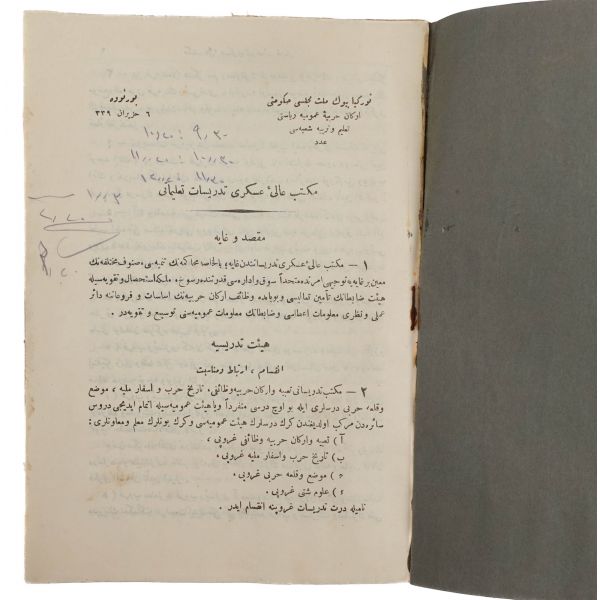 تورکیا بیوك ملت مجلسی حکومتی
ارکان حربیهٔ عمومیه ریاستی
تعلیم و تربیه شعبه‌سی
عدد
بورنووه
٦ حزیران ٣٣٩
مکتب عالیٔ عسکری تدریسات تعلیماتی
مقصد و غایه
١ — مکتب عالیٔ عسکری تدریساتندن غایه، بالخاصه محاکمه‌نك تنمیه‌سی، صنوف مختلفه‌نك
معین بر غایه‌یه توجیهی امرنده متحداً سوق و اداره‌سی قدرتنده رسوخ، ملکه استحصال و تقویه‌سیله
هیئت ضابطانك تأمین تعالیسی و بوبابده وظائف ارکان حربیه‌نك اساسات و فروعاتنه دائر
عملی و نظری معلومات اعطاسی و ضابطانك معلومات عمومیه‌سنی توسیع و تقویه‌در .
هیئت تدریسیه
انقسام ، ارتباط و مناسبت
٢ — مکتب تدریساتی تعبیه و ارکان حربیه وظائفی، تاریخ حرب و اسفار ملیه، موضع
و قلعه حربی درسلری ایله بو اوچ درسی منفرداً و یا هیئت عمومیه‌سیله اتمام ایدیجی دروس
سائره‌دن مرکب اولدیغندن کرك درسلرك هیئت عمومیه‌سی و کرك بونلرك معلم و معاونلری :
آ ) تعبیه و ارکان حربیه وظائفی غروپی ،
ب ) تاریخ حرب و اسفار ملیه غروپی ،
ج ) موضع و قلعه حربی غروپی ،
د ) علوم شتی غروپی ،
نامیله درت تدریسات غروپنه انقسام ایدر .